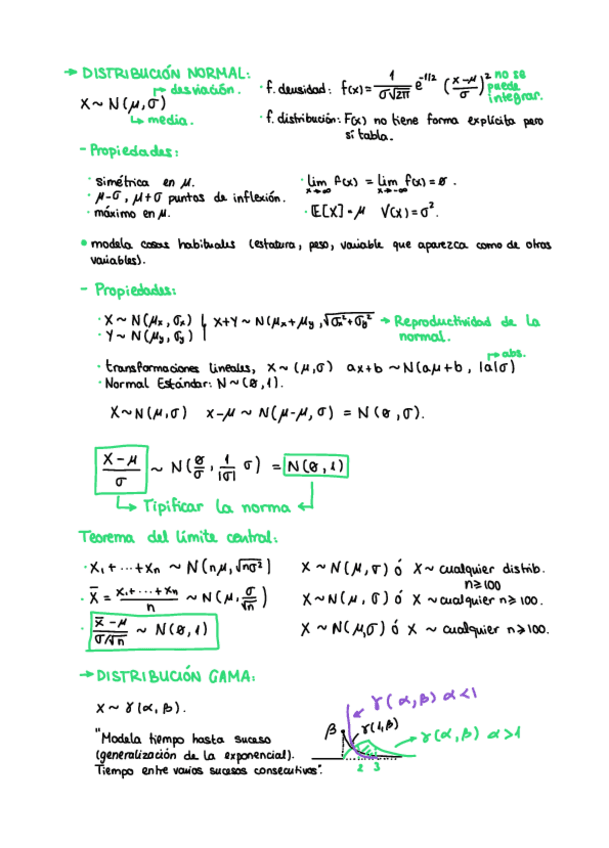 → DISTRIBUCIÓN NORMAL:
desviación.
X ~ N(μ,σ)
media.
· f. densidad: f(x)= 1/(σ√2π) e^-1/2 ((x-μ)/σ)²
no se puede integrar.
· f. distribución: F(x) no tiene forma explícita pero
sí tabla.
- Propiedades:
· simétrica en μ.
· μ-σ, μ+σ puntos de inflexión.
· máximo en μ.
· lim x→∞ f(x) = lim x→-∞ f(x) = 0.
· E[X] = μ V(X) = σ².
• modela cosas habituales (estatura, peso, variable que aparezca como de otras
variables).
- Propiedades:
· X ~ N(μx, σx)
· Y ~ N(μy, σy)
X+Y ~ N(μx+μy, √σx²+σy²) → Reproductividad de la
normal.
abs.
· transformaciones lineales, X ~ (μ,σ) ax+b ~ N(aμ+b, |a|σ)
· Normal Estándar: N ~ (0,1).
X ~ N(μ,σ) x-μ ~ N(μ-μ, σ) = N(0,σ).
(X-μ)/σ ~ N(0/σ, 1/|σ| σ) = N(0,1)
Tipificar la norma
Teorema del límite central:
· X₁+ ··· +Xn ~ N(nμ, √nσ²) X ~ N(μ,σ) ó X ~ cualquier distrib.
n≥100
· X̄ = (X₁+ ··· +Xn)/n ~ N(μ, σ/√n) X ~ N(μ, σ) ó X ~ cualquier n≥100.
· (X̄-μ)/(σ/√n) ~ N(0,1) X ~ N(μ,σ) ó X ~ cualquier n≥100.
→ DISTRIBUCIÓN GAMA:
X ~ γ(α, β).
"Modela tiempo hasta suceso
(generalización de la exponencial).
Tiempo entre varios sucesos consecutivos".
γ(α,β) α<1
β
γ(1,β)
γ(α,β) α>1
2 3